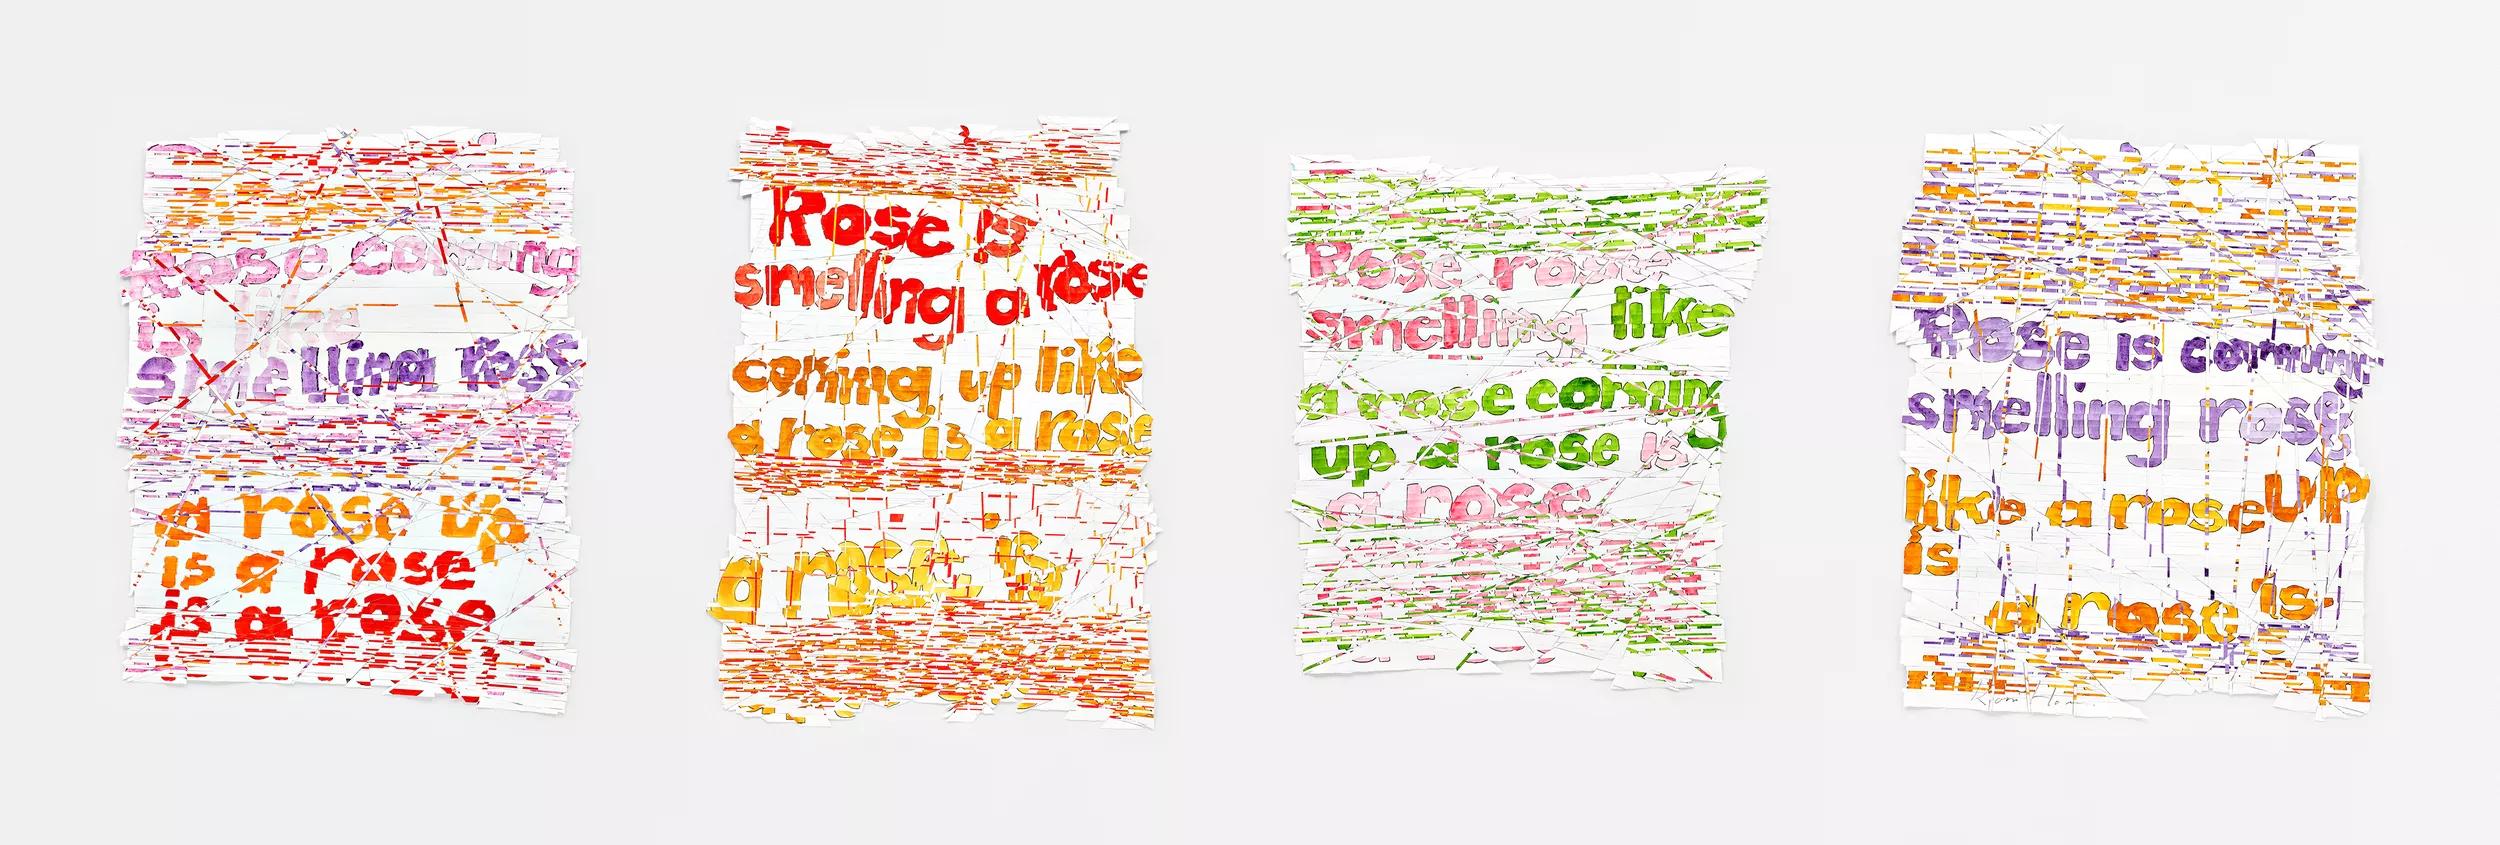 Rose coming
is like
smelling rose
a rose up
is a rose
is a rose
Rose is
smelling a rose
coming up like
a rose is a rose
a rose is
Rose rose
smelling like
a rose coming
up a rose is
a rose
Rose is coming
smelling rose
like a rose up
is
a rose is